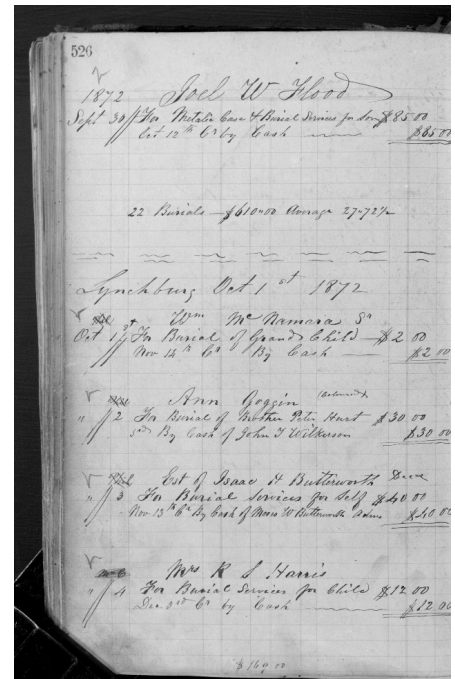 526
1872 Joel W Flood
Sept 30 For Metalic Case & Burial Services for Son $85 00
Oct 12th Cr by Cash $85 00
22 Burials — $610.00 Average 27.72½
Lynchburg Oct 1st 1872
Wm McNamara Sr
Oct 1st For Burial of Grand Child — $2 00
Nov 14th Cr By Cash — $2 00
Ann Goggin (Colored)
" 2 For Burial of Brother Peter Hurt $30 00
By Cash of John T Wilkerson $30 00
Est of Isaac H Butterworth Decd
" 3 For Burial Services for Self $40 00
Nov 13th Cr By Cash of Moses W Butterworth $40 00
Mrs R S Harris
" 4 For Burial Services for Child $12 00
Dec 3rd Cr by Cash $12 00